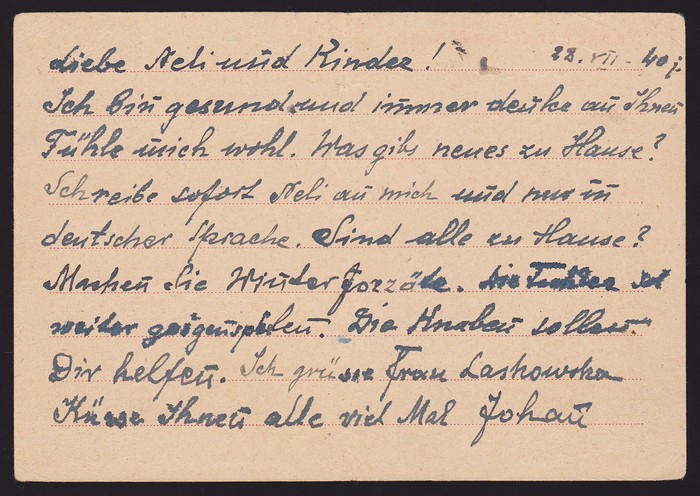 Liebe Neli und Kinder! 28. VII. 40 j.
Ich bin gesund und immer denke an Ihnen
Fühle mich wohl. Was gibs neues zu Hause?
Schreibe sofort Neli an mich und nur in
deutscher Sprache. Sind alle zu Hause?
Machen Sie Winter forräte. Die
weiter Die Knaben sollen
Dir helfen. Ich grüsse Frau Laskowska
Küsse Ihnen alle viel Mal Johan